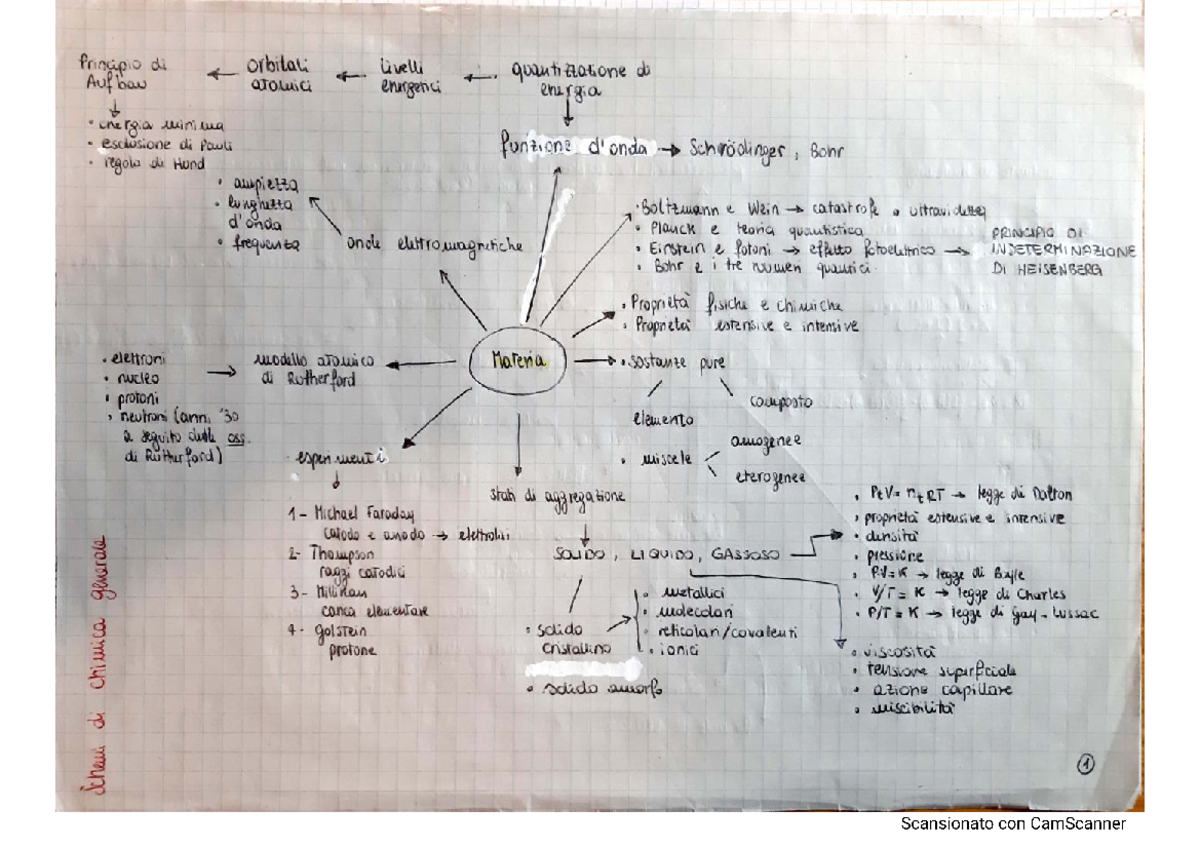 Principio di Aufbau
← orbitali atomici
← livelli energetici
← quantizzazione di energia
• energia minima
• esclusione di Pauli
• regola di Hund
funzione d'onda → Schrödinger, Bohr
• ampiezza
• lunghezza d'onda
• frequenza
onde elettromagnetiche
• Boltzmann e Wein → catastrofe ultravioletta
• Planck e teoria quantistica
• Einstein e fotoni → effetto fotoelettrico →
• Bohr e i tre numeri quantici
PRINCIPIO DI
INDETERMINAZIONE
DI HEISENBERG
• Proprietà fisiche e chimiche
• Proprietà estensive e intensive
Materia
• sostanze pure
elemento
composto
• miscele
omogenee
eterogenee
modello atomico
di Rutherford
• elettroni
• nucleo
• protoni
• neutroni (anni '30
a seguito delle oss.
di Rutherford)
esperimenti
1- Michael Faraday
catodo e anodo → elettrolisi
2- Thompson
raggi catodici
3- Millikan
carica elementare
4- Golstein
protone
stati di aggregazione
SOLIDO, LIQUIDO, GASSOSO
• solido
cristallino
• solido amorfo
• metallici
• molecolari
• reticolari/covalenti
• ionici
• PtV = ntRT → legge di Dalton
• proprietà estensive e intensive
• densità
• pressione
• P·V = K → legge di Boyle
• V/T = K → legge di Charles
• P/T = K → legge di Gay-Lussac
• viscosità
• tensione superficiale
• azione capillare
• miscibilità
Schemi di chimica generale
1
Scansionato con CamScanner